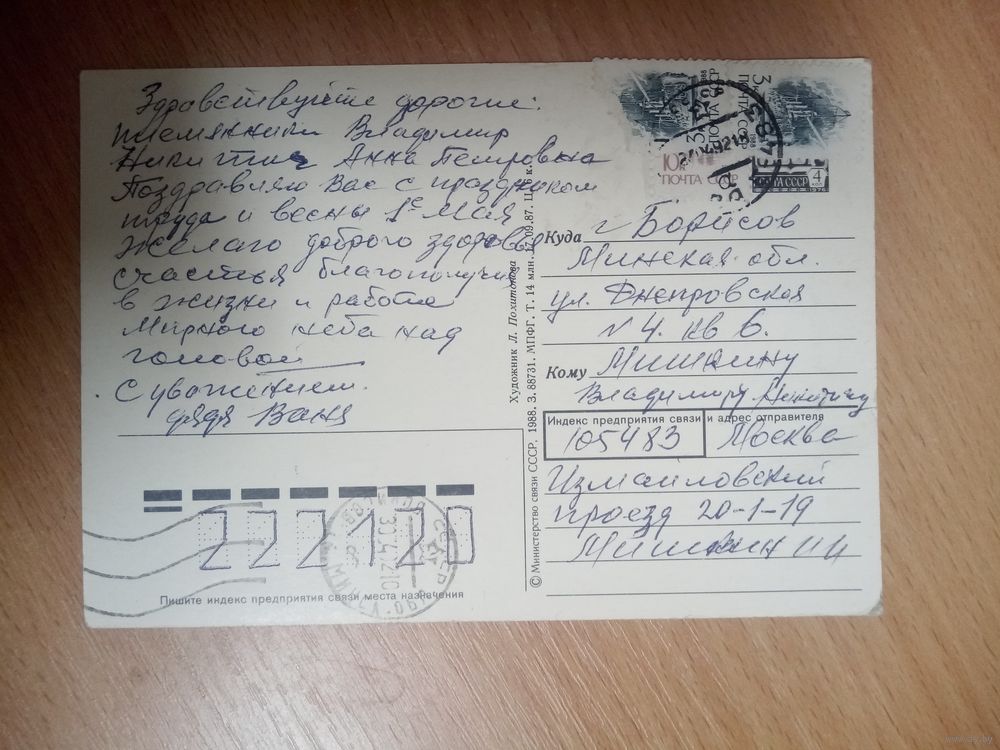 Здравствуйте дорогие:
племянники Владимир
Никитич Анна Петровна
Поздравляю Вас с праздником
труда и весны 1е Мая
желаю доброго здоровья
счастья благополучия
в жизни и работе
Мирного неба над
головой
С уважением.
дядя Ваня
222120
Пишите индекс предприятия связи места назначения
© Министерство связи СССР. 1988. З. 88731. МПФГ. Т. 14 млн. 17.09.87. Ц. 6 к.
Художник Л. Похитонова
ПОЧТА СССР
3
1988
10к
ПОЧТА СССР
ПОЧТА СССР
4 коп
1976
Куда г Борисов
Минская обл.
ул. Днепровская
N 4. кв 6.
Кому Мишкину
Владимиру Никитичу
Индекс предприятия связи и адрес отправителя
105483 Москва
Измайловский
проезд 20-1-19
Мишкин И И